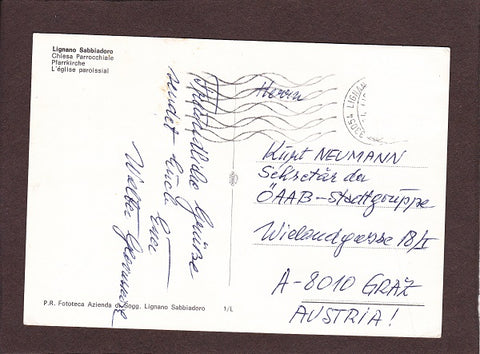 Lignano Sabbiadoro
Chiesa Parrocchiale
Pfarrkirche
L'église paroissial
33054 LIGNANO
Herrn
Kurt NEUMANN
Sekretär der
ÖAAB-Stadtgruppe
Wielandgasse 18/I
A-8010 GRAZ
AUSTRIA!
Grüsse
sendet Euch Euer
Walter
P.R. Fototeca Azienda di Sogg. Lignano Sabbiadoro 1/L